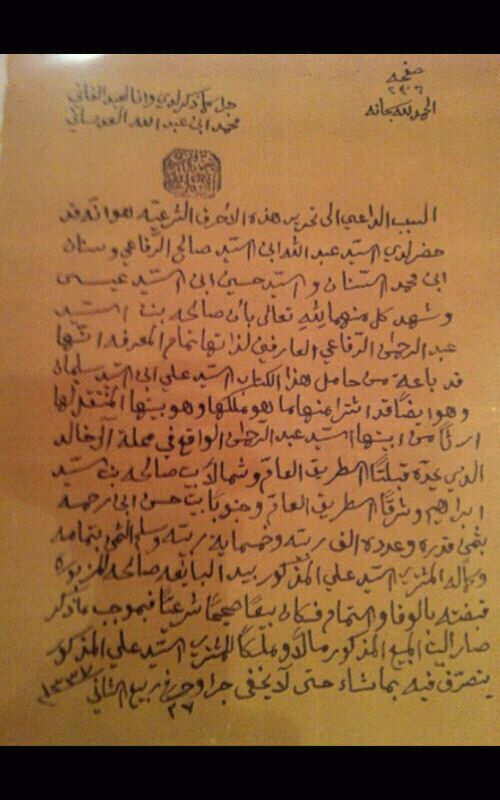 صفحه
٢٣٦
الحمد لله سبحانه
جرى كما ذكر لدي وانا العبد الفاني
محمد ابن عبد الله العدساني
السبب الداعي الى تحرير هذه الاحرف الشرعيه هو انه قد
حضر لدي السيد عبد الله ابن السيد صالح الرفاعي وسنان
ابن محمد السنان و السيد حسين ابن السيد عيسى
وشهد كل منهما لله تعالى بأن صالحه بنت السيد
عبد الرحمن الرفاعي العارفين لذاتها تمام المعرفه انها
قد باعة من حامل هذا الكتاب السيد علي ابن السيد سليمان
وهو ايضاً قد اشترا منها ما هو ملكها وهو بيتها المنتقل لها
ارثاً من ابيها السيد عبد الرحمن الواقع في محلة آل خالد
الذي يحده قبلتاً الطريق العام وشمالاً بيت صالحه بنت السيد
ابراهيم وشرقاً الطريق العام وجنوباً بيت حسن ابن رحمه
بثمن قدره وعدده الف ربيه وخمسماية ربيه وسلم الثمن بتمامه
وكماله المشتري السيد علي المذكور بيد البايعه صالحه المزبوره
قبضته بالوفا والتمام فكان بيعاً صحيحاً شرعياً فبموجب ما ذكر
صار البيت المبيع المذكور مالاً وملكاً للمشتري السيد علي المذكور
يتصرف فيه بما شاء حتى لا يخفى جرا وحرر في ربيع الثاني
٢٧
١٣٣٧